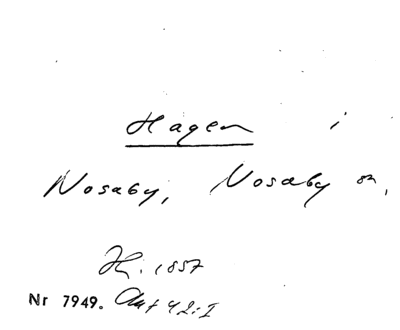 Hagen i
Nosaby, Nosaby sn,
1857
Nr 7949.